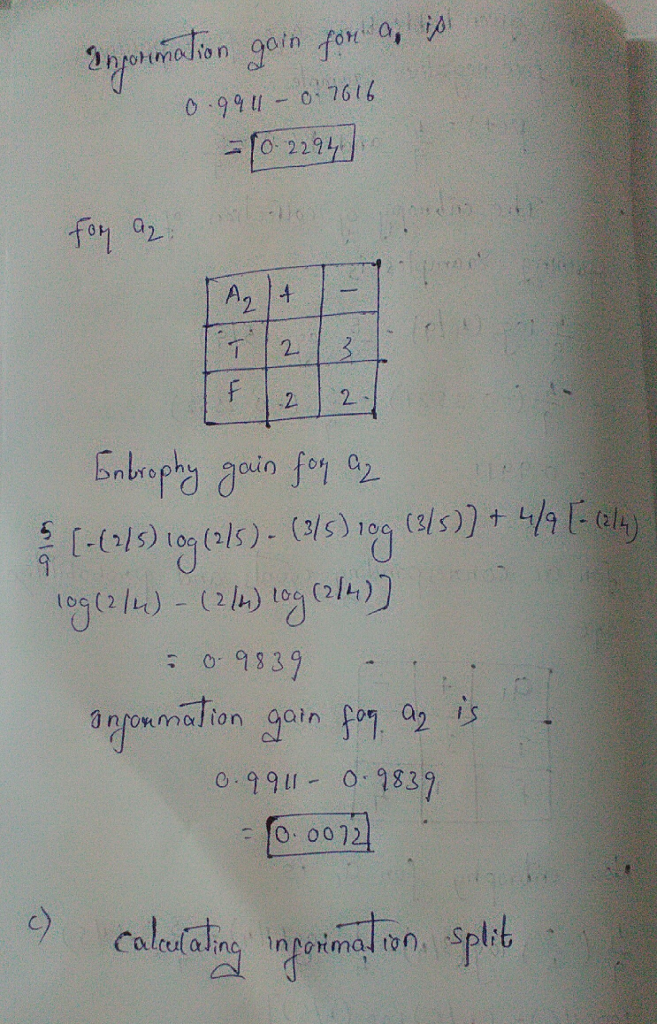 Information gain for a₁ is
0.9911 - 0.7616
= 0.2294
for a₂
A₂ + -
T 2 3
F 2 2
Entrophy gain for a₂
5/9 [-(2/5) log(2/5) - (3/5) log (3/5)] + 4/9 [-(2/4)
log(2/4) - (2/4) log (2/4)]
= 0.9839
Information gain for a₂ is
0.9911 - 0.9839
= 0.0072
c) Calculating information split